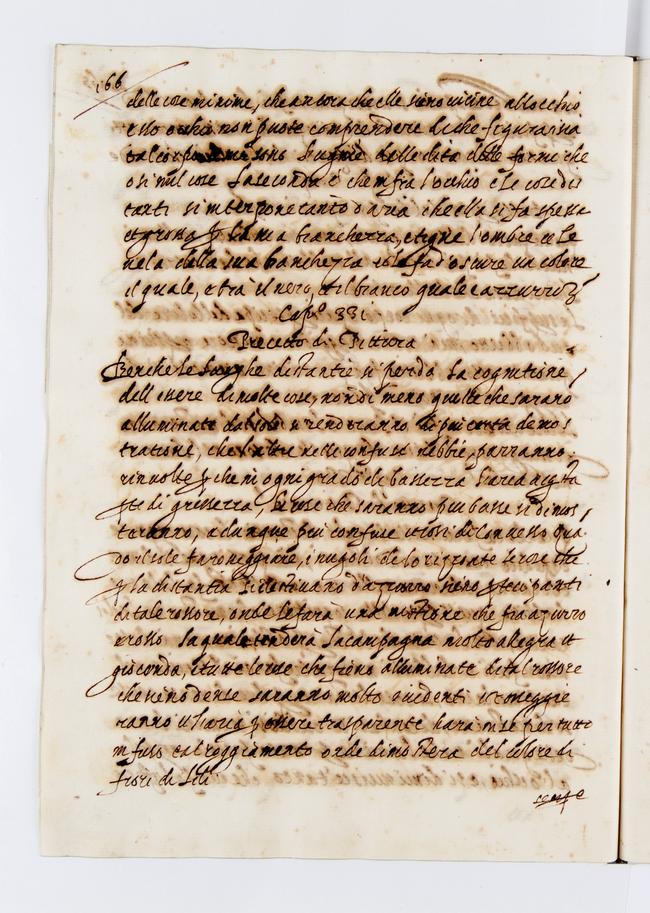 166
delle cose minime, che ancora che elle sieno vicine allocchio
esso ochio non puote comprendere di che figura sia
tal corpo
o simil cose La seconda è che infra l'occhio e le cose dis
tanti s'interpone tanto d'aria che ella si fa spessa
et grossa et la sua bianchezza, et tigne l'ombre
della sua bianchezza et le fa d'oscure un colore
il quale, e tra il nero, et il bianco quale è azzurro
Cap.º 331
Precetto di Pittura
Benche le lunghe distantie si perda la cognitione
dell essere di molte cose, nondimeno quelle che sarano
alluminate dal sole si renderanno di piu certa demos
tratione, che l'altre nelle confuse nebbie, parranno
rinvolte et che in ogni grado di bassezza l'area acquista
parte di grossezza, le cose che saranno piu basse si dimos
taranno, adunque piu confuse
do il sole fa rosseggiare, i nugoli de lorizzonte le cose che
per la distantia si vestivano d'azzurro
di tale rossore, onde se farà una mistione che fra azzurro
e rosso la quale renderà la campagna molto alegra et
gioconda, e tutte le cose che fieno alluminate di tal rossore
che sieno dense saranno molto evidenti et rosseggie
ranno et l'aria per essere trasparente hara in se per tutto
infuso tal rosseggiamento onde si mostrera del colore di
fiori di Lili
sempre